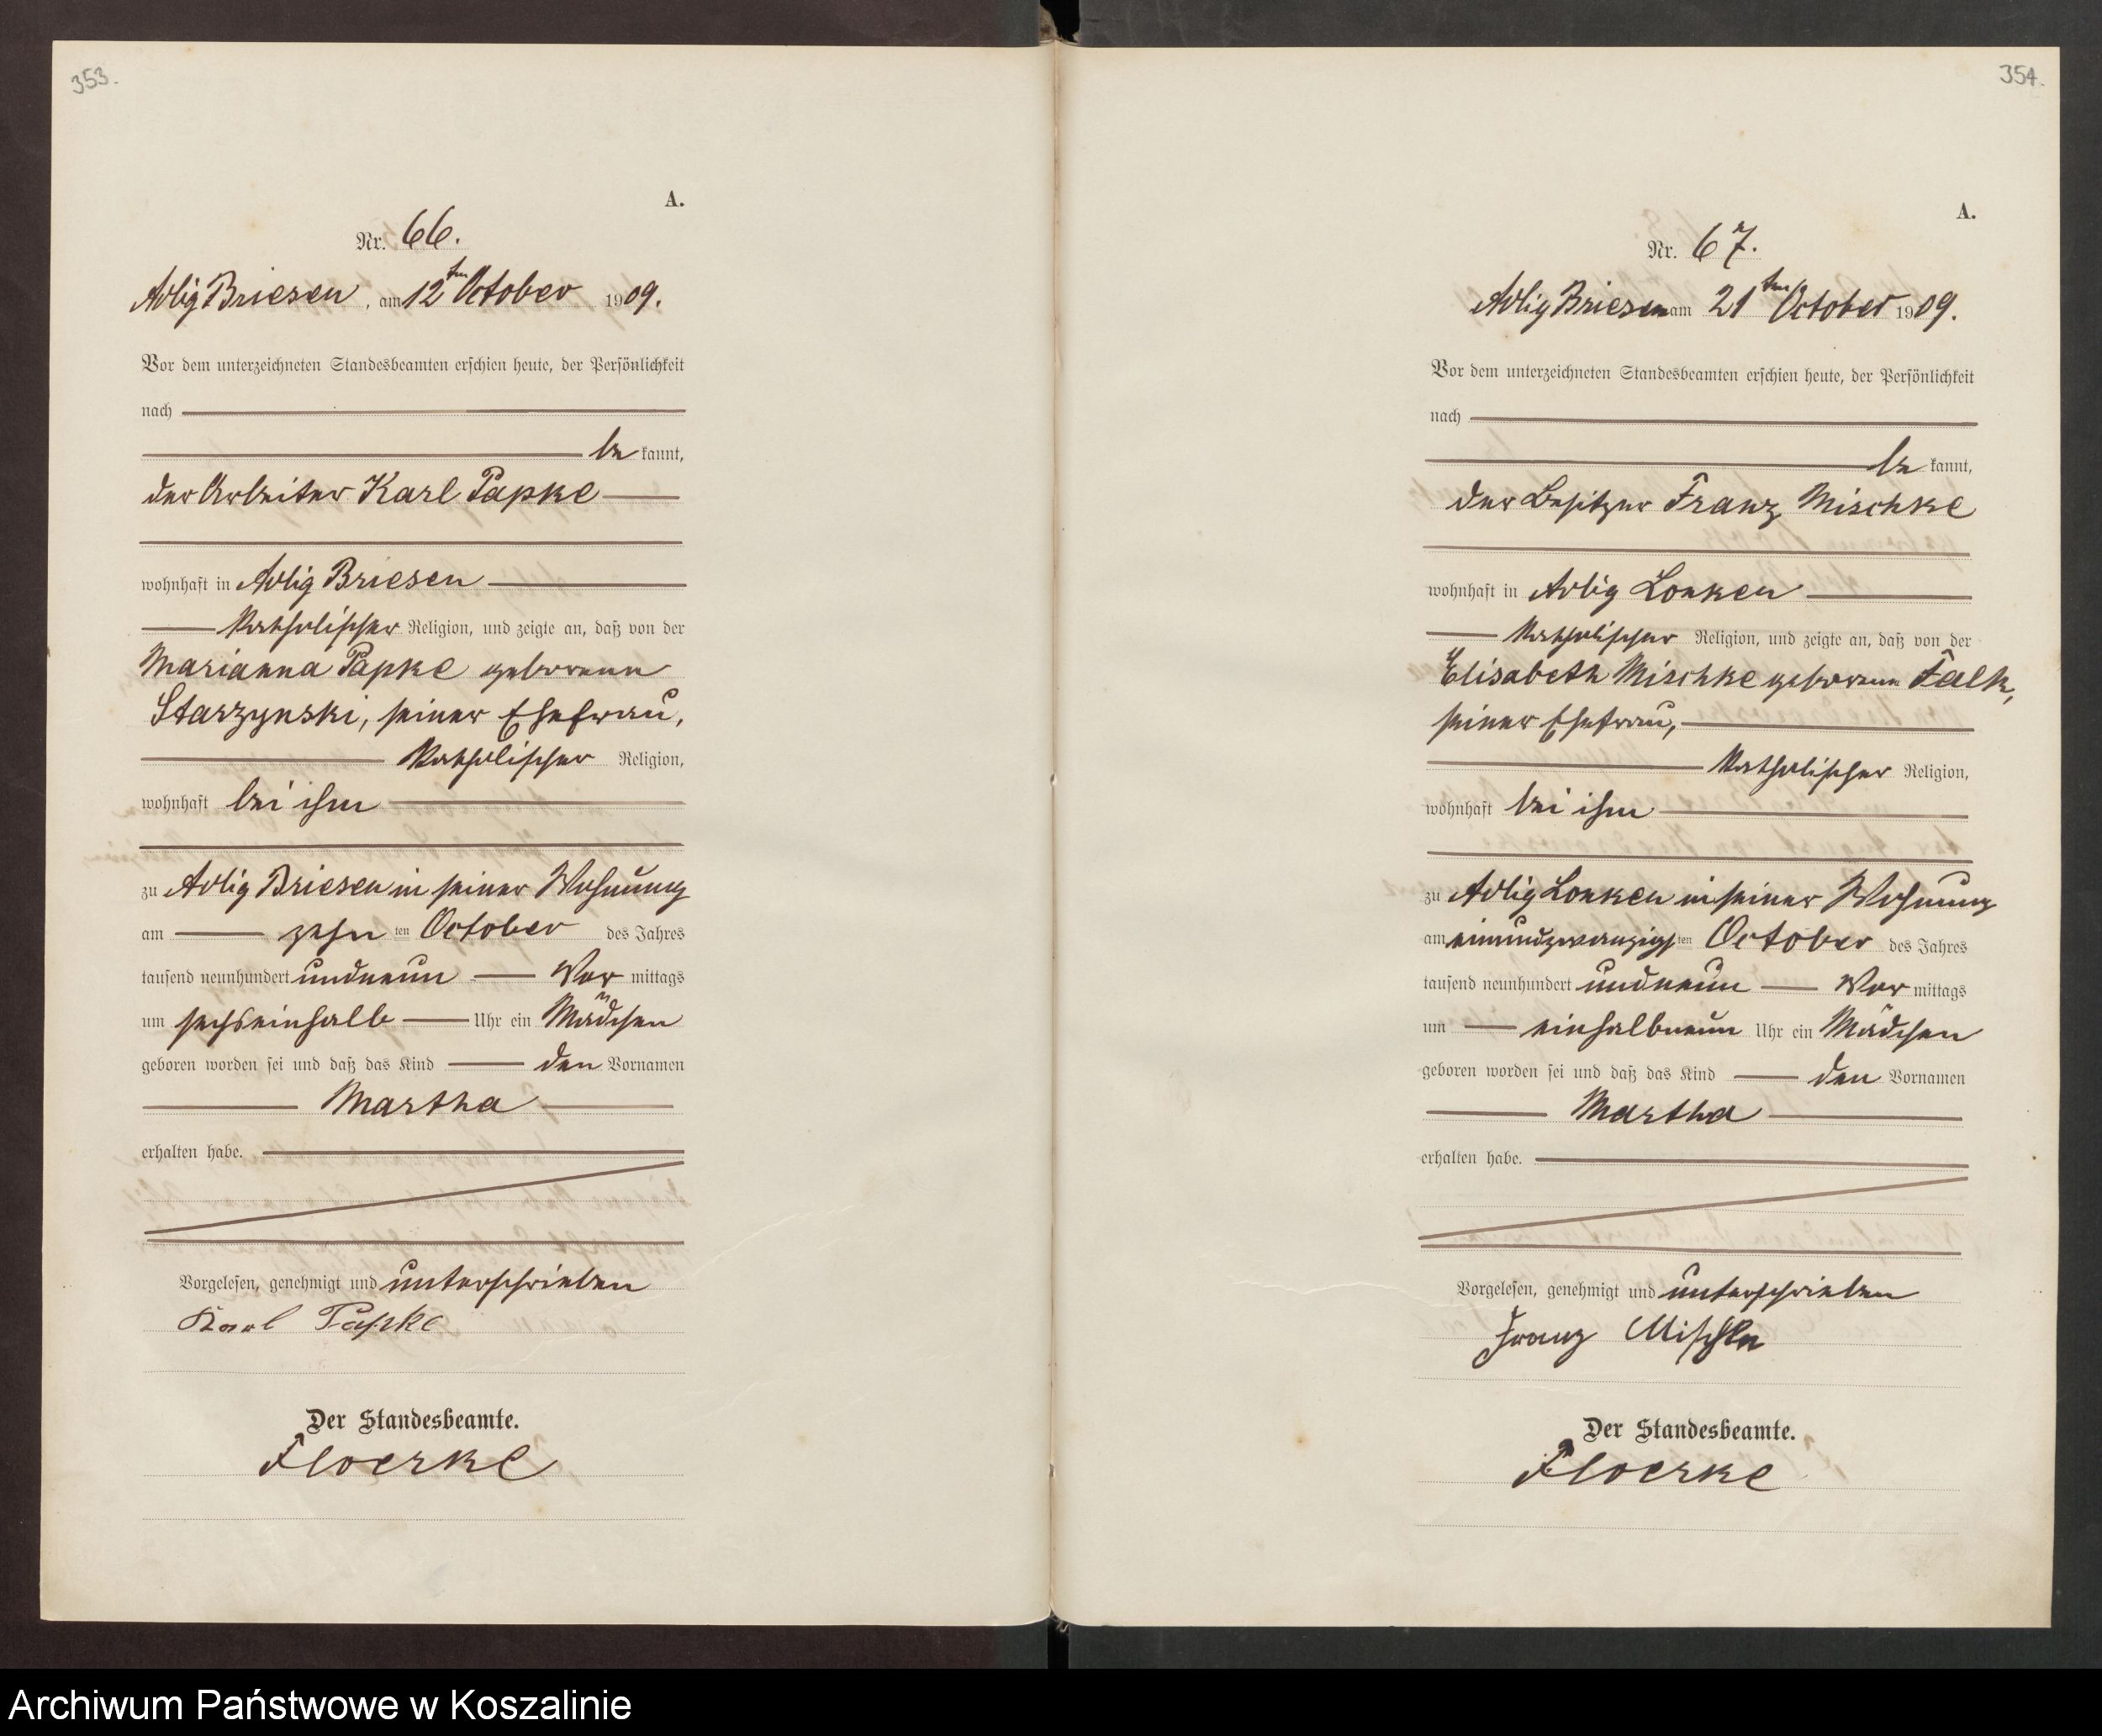 353.
A.
Nr. 66.
Adlig Briesen, am 12ten October 1909.
Vor dem unterzeichneten Standesbeamten erschien heute, der Persönlichkeit
nach
be kannt,
der Arbeiter Karl Papke
wohnhaft in Adlig Briesen
katholischer Religion, und zeigte an, daß von der
Marianna Papke geborenen
Starzynski, seiner Ehefrau,
katholischer Religion,
wohnhaft bei ihm
zu Adlig Briesen in seiner Wohnung
am zehn ten October des Jahres
tausend neunhundert undneun Vor mittags
um sechseinhalb Uhr ein Mädchen
geboren worden sei und daß das Kind den Vornamen
Martha
erhalten habe.
Vorgelesen, genehmigt und unterschrieben
Karl Papke
Der Standesbeamte.
Floerke
354.
A.
Nr. 67.
Adlig Briesen am 21ten October 1909.
Vor dem unterzeichneten Standesbeamten erschien heute, der Persönlichkeit
nach
be kannt,
der Besitzer Franz Mischke
wohnhaft in Adlig Lonken
katholischer Religion, und zeigte an, daß von der
Elisabeth Mischke geborenen Falk,
seiner Ehefrau,
katholischer Religion,
wohnhaft bei ihm
zu Adlig Lonken in seiner Wohnung
am einundzwanzigs ten October des Jahres
tausend neunhundert undneun Vor mittags
um einhalbneun Uhr ein Mädchen
geboren worden sei und daß das Kind den Vornamen
Martha
erhalten habe.
Vorgelesen, genehmigt und unterschrieben
Franz Mischke
Der Standesbeamte.
Floerke
Archiwum Państwowe w Koszalinie